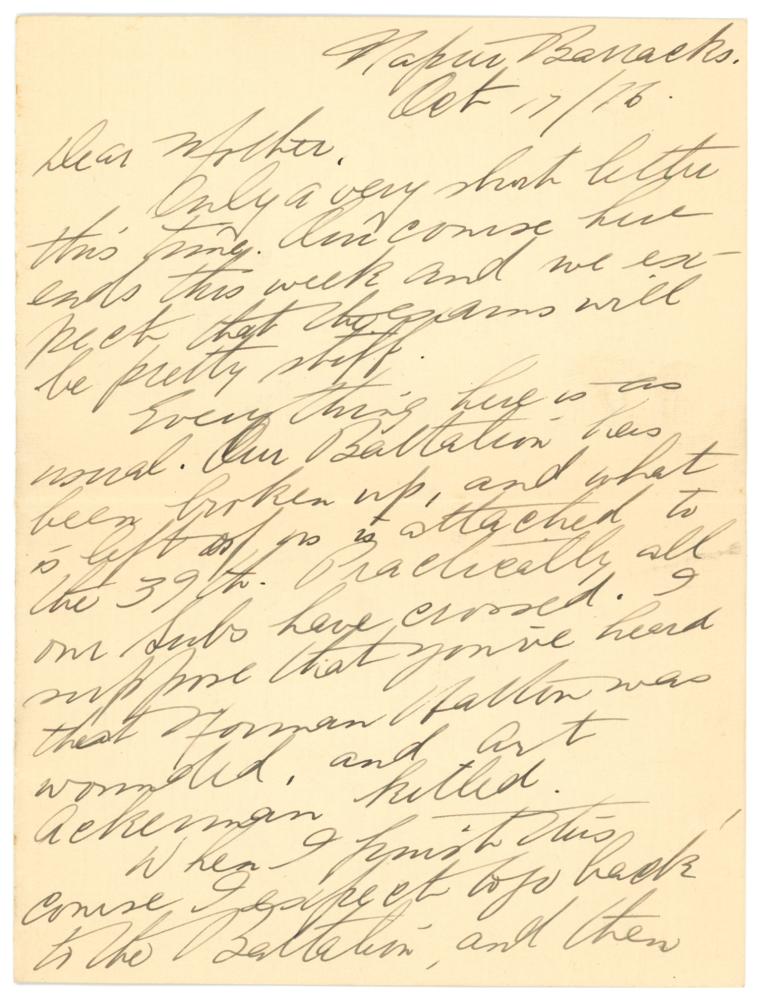 Napier Barracks.
Oct 17/16.
Dear Mother,
Only a very short letter
this time. Our course here
ends this week and we ex-
pect that the exams will
be pretty stiff.
Everything here is as
usual. Our Battalion has
been broken up, and what
is left of us is attached to
the 39th. Practically all
our subs have crossed. I
suppose that you've heard
that Norman was
wounded, and Art
Ackerman killed.
When I finish this
course I expect to go back
to the Battalion, and then